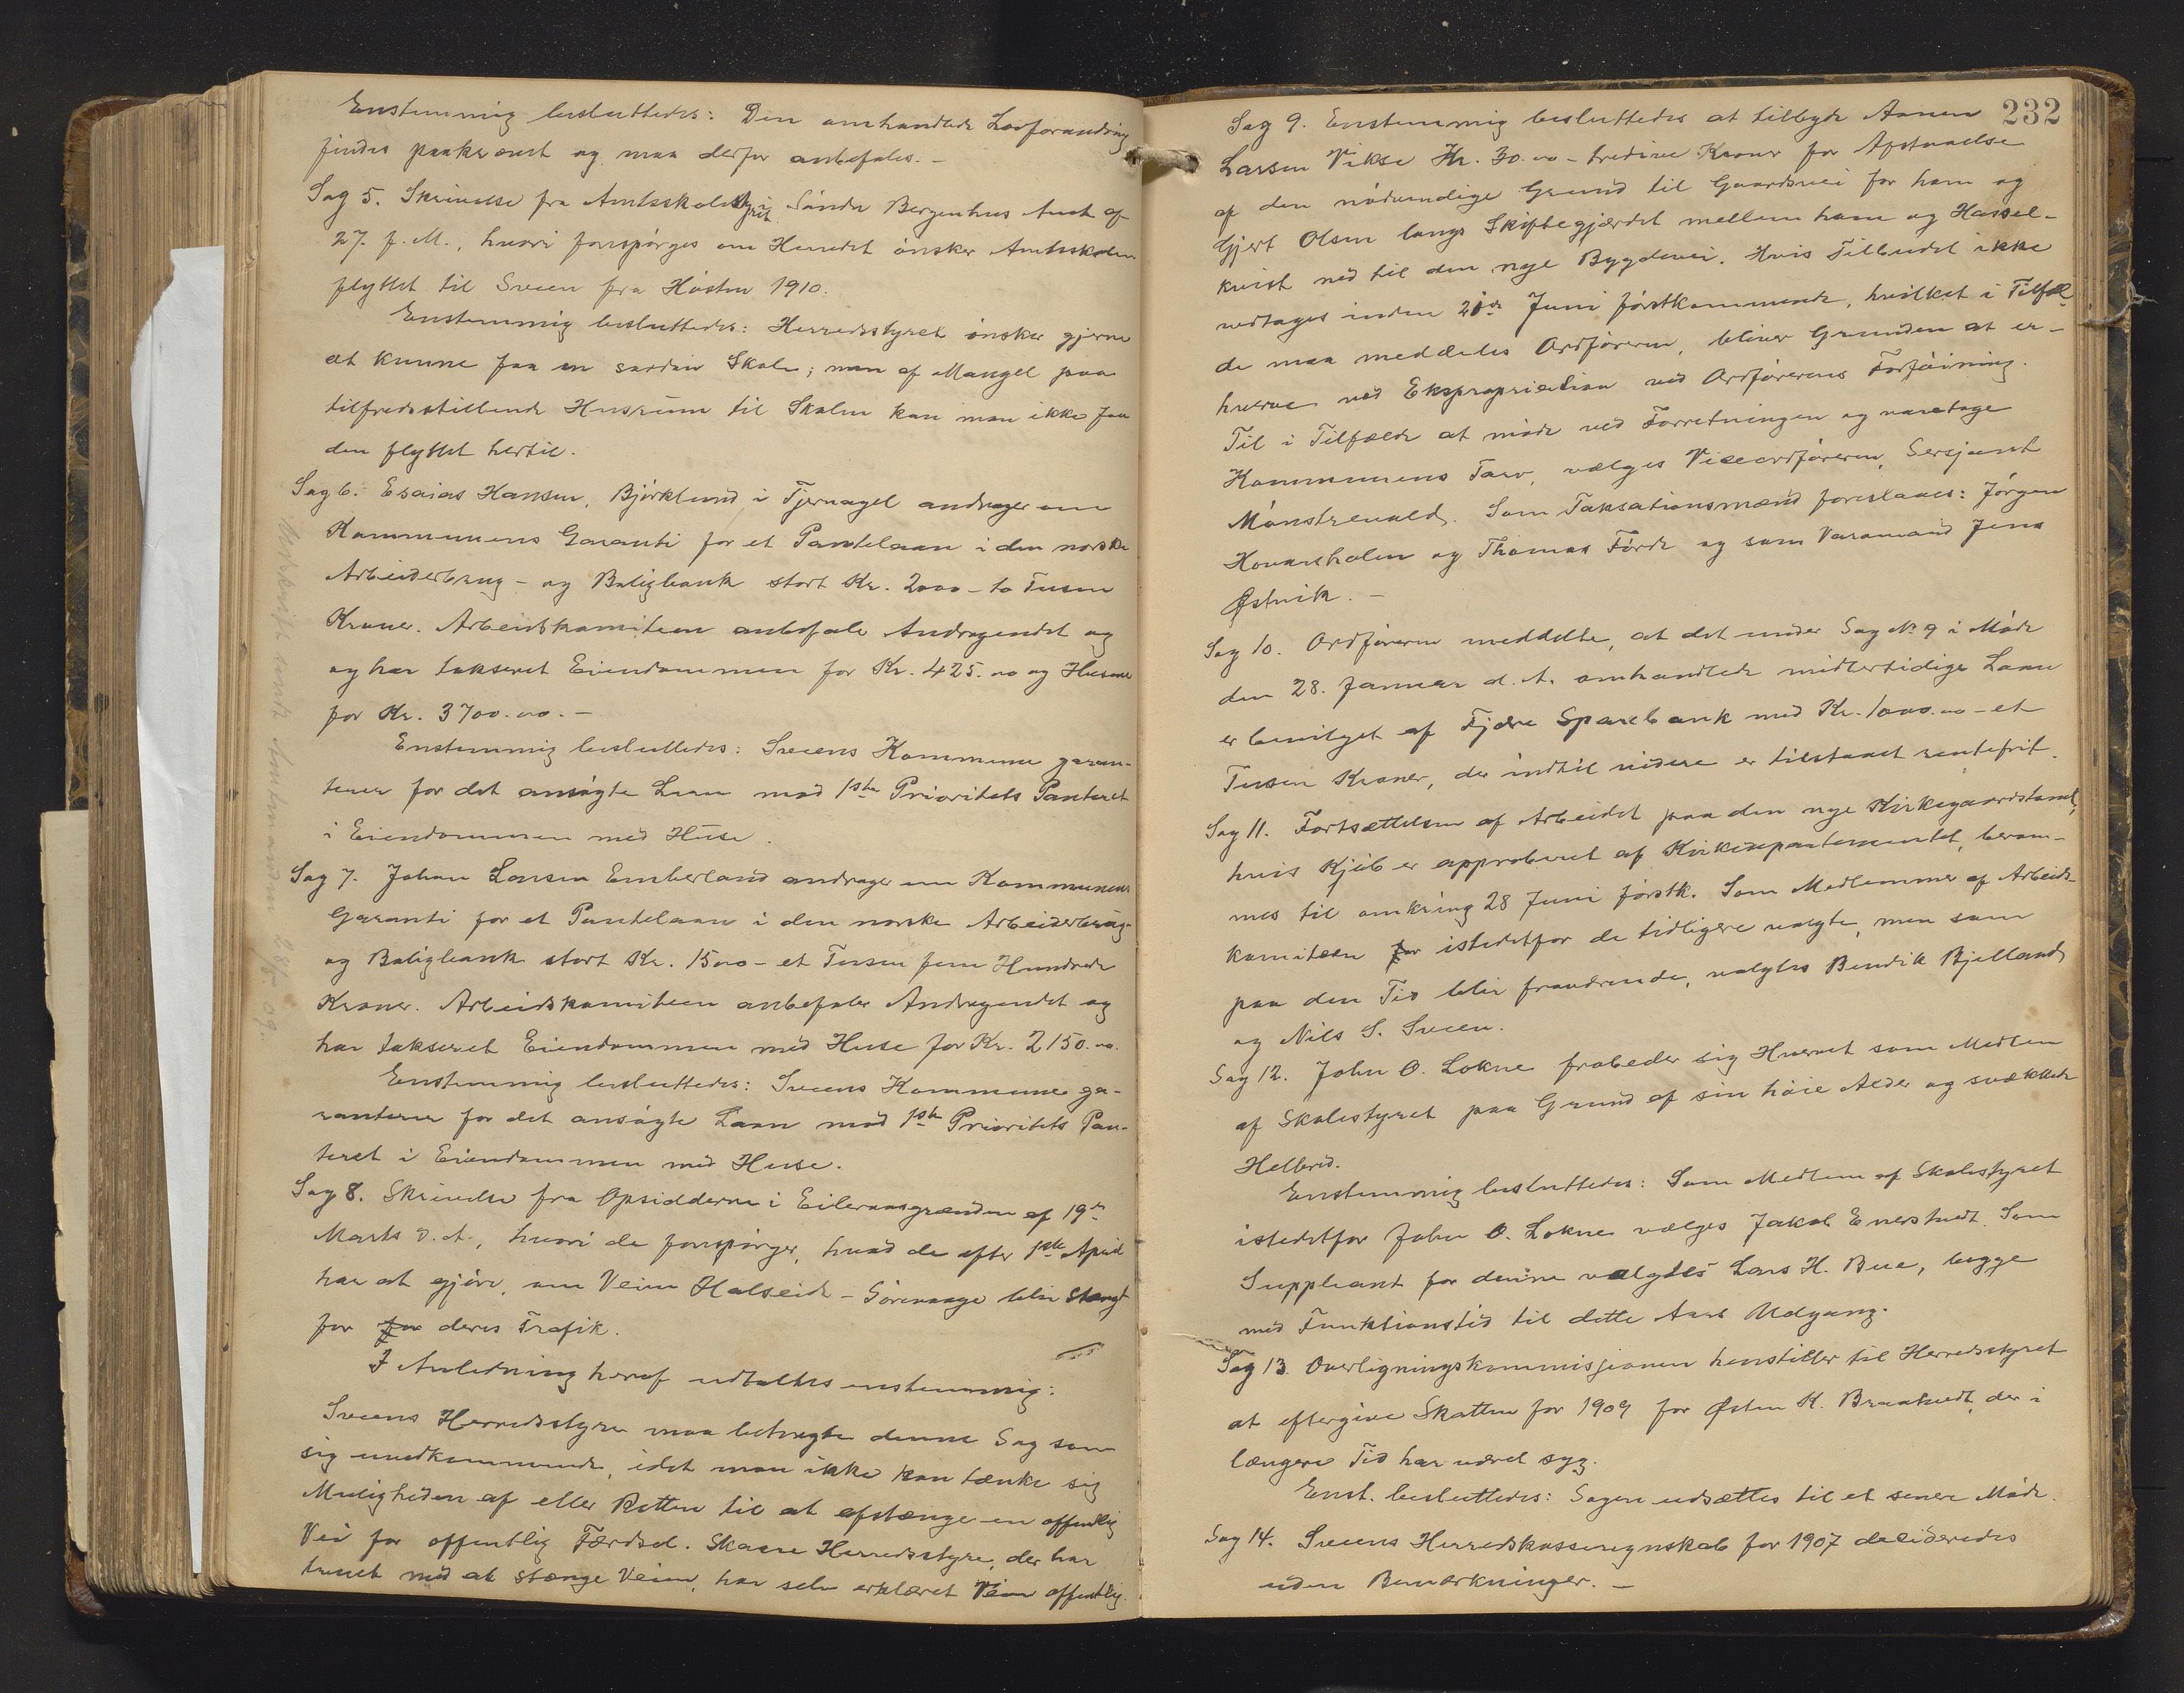 Enstemmig besluttedes: Den omhandlede Lovforandring
findes paakrævet og maa derfor anbefales. –
Sag 5. Skrivelse fra Amtsskolestyret i Söndre Bergenhus Amt af
27. f. M., hvori forespörges om Herredet önsker Amtsskolen
flyttet til Sveen fra Hösten 1910.
Enstemmig besluttedes: Herredsstyret önsker gjerne
at kunne faa en saadan Skole; men af Mangel paa
tilfredsstillende Husrum til Skolen kan man ikke faa
den flyttet hertil.
Sag 6. Esaias Hansen, Björklund i Tjernagel andrager om
Kommunens Garanti for et Pantelaan i den norske
Arbeiderbrug- og Boligbank stort Kr. 2000 – to Tusen
Kroner. Arbeidskomiteen anbefale Andragendet og
og har takseret Eiendommen for Kr. 425.00 og Husene
for Kr. 3700.00. –
Enstemmig besluttedes: Sveens Kommune garan-
terer for det ansögte Laan mod 1ste Prioritets Panteret
i Eiendommen med Huse.
Sag 7. Johan Larsen Emberland andrager om Kommunens
Garanti for et Pantelaan i den norske Arbeiderbrug-
og Boligbank stort Kr. 1500 – et Tusen fem Hundrede
Kroner. Arbeidskomiteen anbefaler Andragendet og
har takseret Eiendommen med Huse for Kr. 2150.00.
Enstemmig besluttedes: Sveens Kommune ga-
ranterer for det ansögte Laan mod 1ste Prioritets Pan-
teret i Eiendommen med Huse.
Sag 8. Skrivelse fra Opsidderne i Eileraasgrænden af 19de
Marts d. A., hvori de forespörger, hvad de efter 1ste April
har at gjöre, om Veien Halseide – Sörevaage blir stængt
for for deres Trafik.
I Anledning heraf udtaltes enstemmig:
Sveens Herredsstyre maa betragte denne Sag som
sig uvedkommende, idet man ikke kan tænke sig
Muligheden af eller Retten til at afstænge en offentlig
Vei for offentlig Færdsel. Skaare Herredsstyre, der har
truet med at stænge Veien, har selv erklæret Veien offentlig.
232
Sag 9. Enstemmig besluttedes at tilbyde Aanen
Larsen Vikse Kr. 30.00 – tredive Kroner for Afstaaelse
af den nödvendige Grund til Gaardsvei for ham og
Gjert Olsen langs Skiftegjærdet mellem ham og Hassel-
kvist ned til den nye Bygdevei. Hvis Tilbudet ikke
vedtages inden 21de Juni förstkommende, hvilket i Tilfæl-
de maa meddeles Ordföreren, bliver Grunden at er-
hverve ved Ekspropriation ved Ordförerens Forföining.
Til i Tilfælde at möde ved Forretningen og varetage
Kommunens Tarv, vælges Viceordföreren, Sersjant
Mönstrevold. Som Taksationsmænd foreslaaes: Jörgen
Hovarsholm og Thomas Förde og som Varamand Jens
Østvik. –
Sag 10. Ordföreren meddelte, at det under Sag № 9 i Möde
den 28. Januar d. A. omhandlede midlertidige Laan
er bevilget af Fjære Sparebank med Kr. 1000.00 – et
Tusen Kroner, der indtil videre er tilstaaet rentefrit.
Sag 11. Fortsættelsen af Arbeidet paa den nye Kirkegaardstomt,
hvis Kjöb er approberet af Kirkedepartementet, beram-
mes til omkring 28 Juni förstk. Som Medlemmer af Arbeids-
komiteen for istedetfor de tidligere valgte, men som
paa den Tid blir fraværende, valgtes Bendik Bjelland
og Nils S. Sveen.
Sag 12. John O. Lokne frabeder sig Hvervet som Medlem
af Skolestyret paa Grund af sin höie Alder og svækkede
Helbred.
Enstemmig besluttedes: Som Medlem af Skolestyret
istedetfor John O. Lokne vælges Jakob Enerstvedt. Som
Suppleant for denne valgtes Lars H. Bue, begge
med Funktionstid til dette Aars Udgang.
Sag 13. Overligningskommisjionen henstiller til Herredsstyret
at eftergive Skatten for 1909 for Østen K. Braatvedt, der i
længere Tid har været syg.
Enst. besluttedes: Sagen udsættes til et senere Möde.
Sag 14. Sveens Herredskasseregnskab for 1907 decideredes
uden Bemærkninger. –